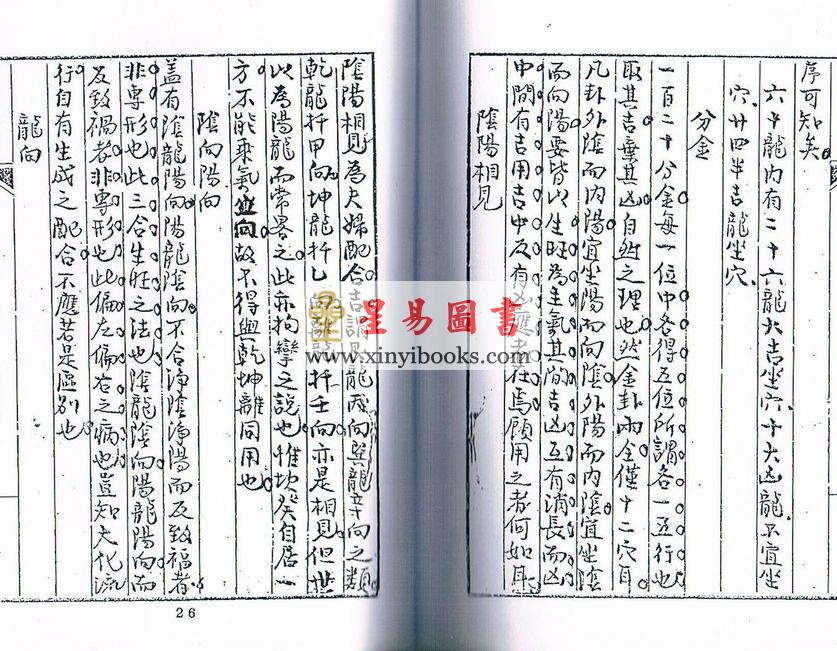 序可知矣
六十龍內有二十六龍大吉坐穴十大凶龍不宜坐
穴廿四半吉龍坐穴
分金
一百二十分金每一位中各得五位所謂各一五行也
取其吉棄其凶自然之理也然金卦兩全僅十二穴耳
凡卦外陰而內陽宜坐陽而向陰外陽而內陰宜坐陰
而向陽要皆以生旺為主氣其間吉凶互有消長而凶
中間有吉用吉中反有凶應者在焉顧用之者何如耳
陰陽相見
陰陽相見為夫婦配合吉謂艮龍丙向巽龍辛向之類
乾龍扦甲向坤龍扦乙向離龍扦壬向亦是相見但世
以為陽龍而常畧之此亦拘攣之說也惟坎癸自居一
方不能乘氣並向故不得與乾坤離同用也
陰向陽向
盖有陰龍陽向陽龍陰向不合淨陰淨陽而反致福者
非專形也此三合生旺之法也陰龍陰向陽龍陽向而
反致禍者非專形也此偏左偏右之病也豈知大化流
行自有生成之配合不應若是區別也
龍向
26
星易圖書
www.xinyibooks.com